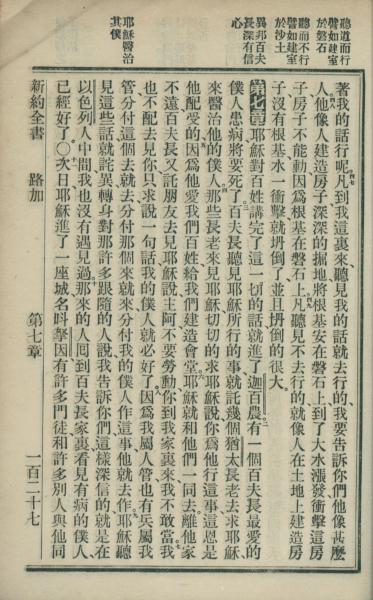 聽道而行
譬如建室
於磐石
聽而不行
譬如建室
於沙土
異邦百夫
長深有信
心
耶穌醫治
其僕
著我的話行呢凡到我這裏來聽見我的話就去行的我要告訴你們他像甚麼
人他像人建造房子深深的掘地將根基安在磐石上到了大水漲發衝擊這房
子房子不能動因爲根基在磐石上凡聽見不去行的就像人在土地上建造房
子沒有根基水一衝擊就坍倒了並且坍倒的很大
第七章耶穌對百姓講完了這一切的話就進了迦百農有一個百夫長最愛的
僕人患病將要死了百夫長聽見耶穌所行的事就託幾個猶太長老去求耶穌
來醫治他的僕人那些長老來見耶穌切切的求耶穌說你爲他行這事這恩是
他配受的因爲他愛我們百姓給我們建造會堂耶穌就和他們一同去離他家
不遠百夫長又託朋友去見耶穌說主阿不要勞動你到我家裏來我不敢當我
也不配去見你只求說一句話我的僕人就必好了因爲我屬人管也有兵屬我
管分付這個去就去分付那個來就來分付我的僕人作這事他就去作耶穌聽
見這些話就詫異轉身對那許多跟隨的人說我告訴你們這樣深信的就是在
以色列人中間我也沒有遇見過那來的人囘到百夫長家裏看見有病的僕人
已經好了〇次日耶穌進了一座城名呌拏因有許多門徒和許多別人與他同
新約全書 路加 第七章 一百二十七